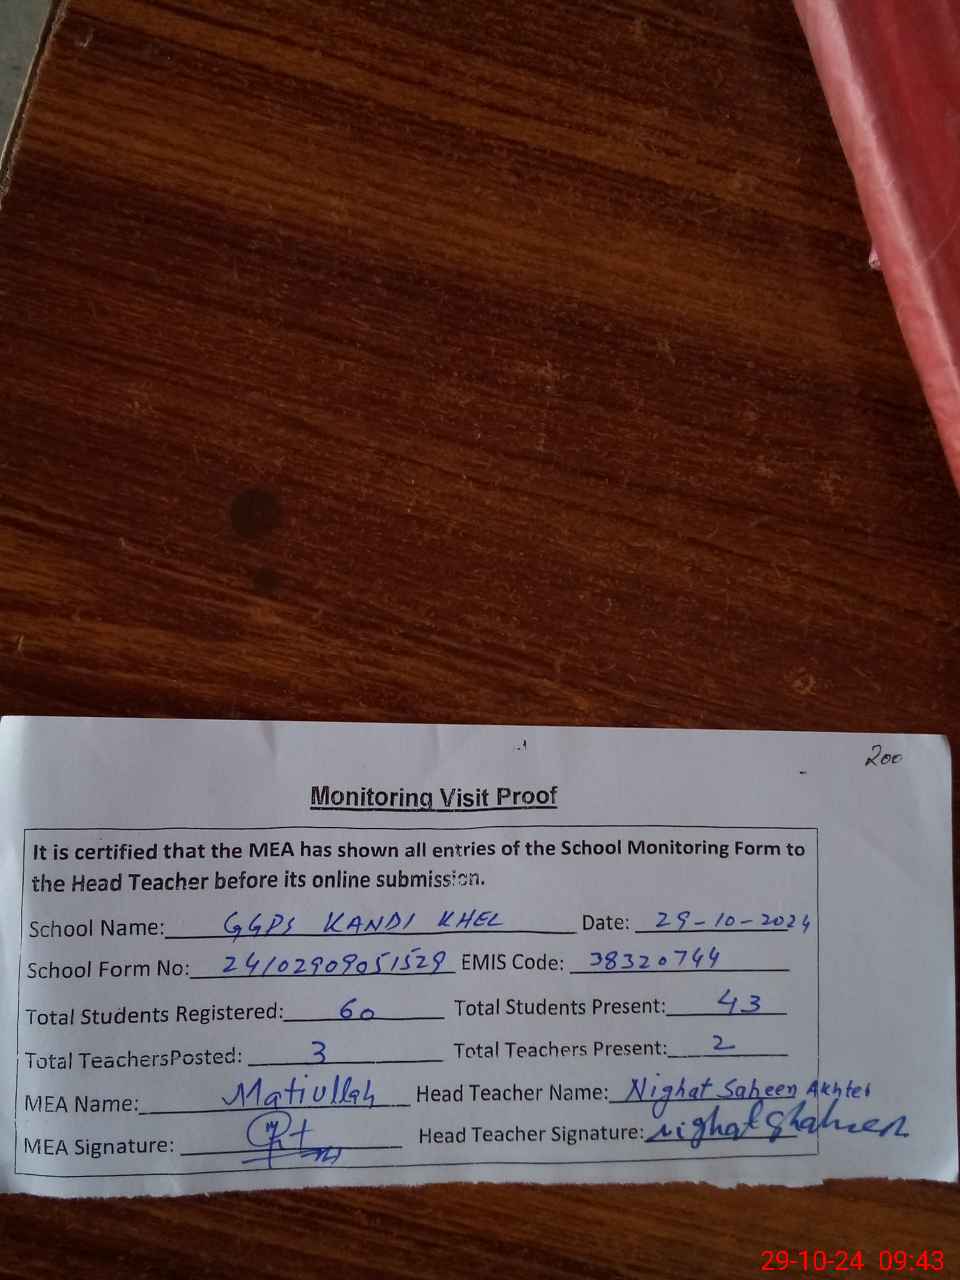 200
Monitoring Visit Proof
It is certified that the MEA has shown all entries of the School Monitoring Form to
the Head Teacher before its online submission.
School Name: GGPS KANDI KHEL Date: 29-10-2024
School Form No: 24102909051529 EMIS Code: 38320744
Total Students Registered: 60 Total Students Present: 43
Total TeachersPosted: 3 Total Teachers Present: 2
MEA Name: Matiullah Head Teacher Name: Nighat Saheen Akhter
MEA Signature: Head Teacher Signature: Nighat Shaheen
29-10-24 09:43